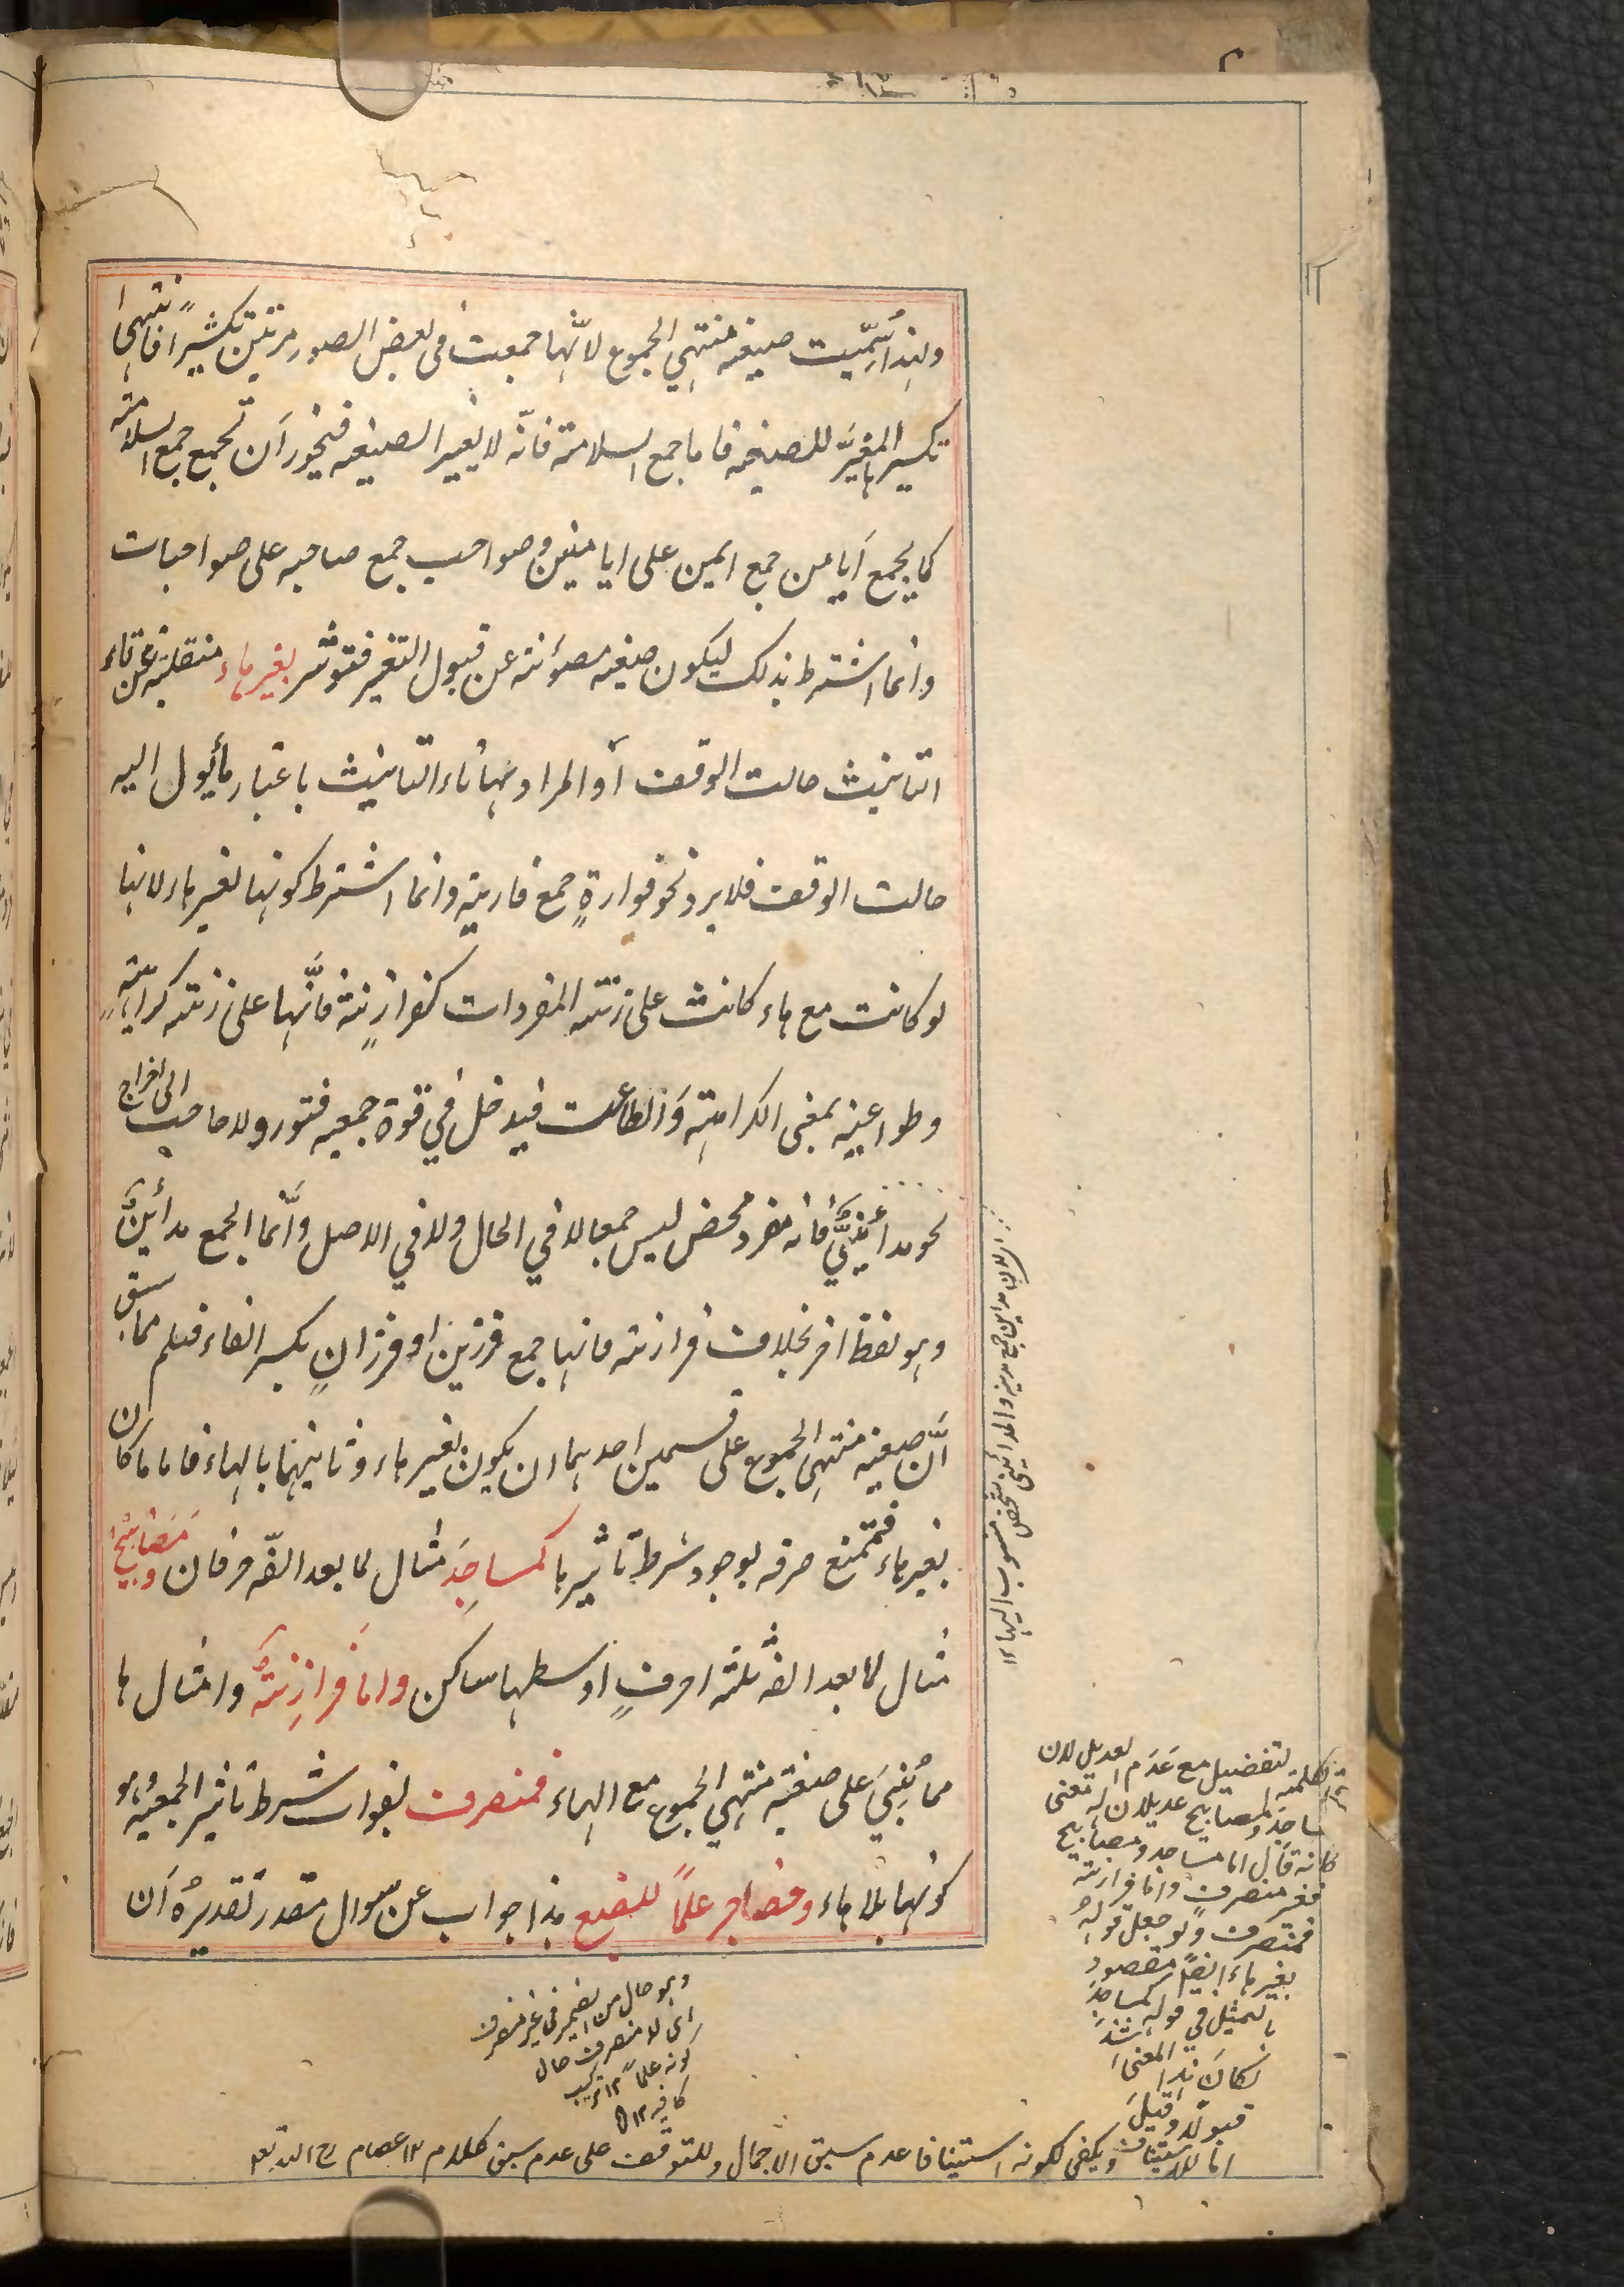 ولهذا سُمِّيت صيغة منتهي الجموع لانّها جمعت في بعض الصور مرتين تكسيرًا فانتهى
تكسيرها المغيّر للصيغة فاما جمع السلامة فانّه لا يغير الصيغة فيجوز اَن تجمع جمع السلامة
كما يجمع اَيامن جمع ايمن على ايامنين وصواحب جمع صاحبه على صواحبات
وانما اشترط بذلك ليكون صيغه مصؤنته عن قبول التغير فتؤثر بغير هاء منقلبة عن تاء
التانيث حالت الوقف اَو المراد بها تاء التانيث باعتبار ما يؤل اليه
حالت الوقف فلا يرد نحو فوارةٍ جمع فارهة وانما اشترط كونها بغير هاء لانها
لو كانت مع هاء كانت على زنته المفردات كفرازنة فانَّها على زنته كراهية
وطواعية بمعنى الكراهة وَالطاعت فيدخل في قوة جمعيه فتور ولا حاجت الى اخراج
نحو مدائنيٌّ فانه مفرد محض ليس جمعا لا في الحال ولا في الاصل وانَّما الجمع مدائنُ
وهو لفظ اخر بخلاف فرازنة فانها جمع فرزين او فرزان بكسر الفاء فعلم مما سبق
اَنَّ صيغة منتهى الجموع على قسمين احدهما ان يكون بغير هاء وثانيهما بالهاء فاما ما كان
بغير هاء فممتنع صرفه لوجود شرط تاثيرها كمساجدَ مثال لما بعد الفه حرفان ومَصَابيحَ
مثال لما بعد الفه ثلثة احرفٍ اوسطها ساكن واما فرازِنةٌ وامثالها
مما بُنِيَ على صيغة منتهي الجموع مع الهاء فمنصرف لفوات شرط تاثير الجمعية وهو
كونها بلا هاء وحضاجر علمًا للضبع هذا جواب عن سوال مقدر تقديرُه اَن
لان مداين جمع مدينة والمدائني شخص منسوب اليها ١٢
كلمة لتفضيل مع عَدَم لعديل لان
مساجد ومصابيح عديلان له تعنى
كانه قال اما مساجد ومصابيح
فغير منصرف واما فرازنة
فمنصرف ولو جعل قولهُ
بغير هاء ايضًا مقصود
بالتمثيل في قوله كمساجدَ
لكان هذا المعنى
قبوله وقيل
اما للاستيناف ويكفى لكونه استينافا عدم سبق الاجمال وللتوقف على عدم سبق كلام ١٢ عصام
وهو حال من الضمير في غير منصرف
اى لا منصرف حال
كونه علمًا ١٢ تركيب
كافيه ١٢